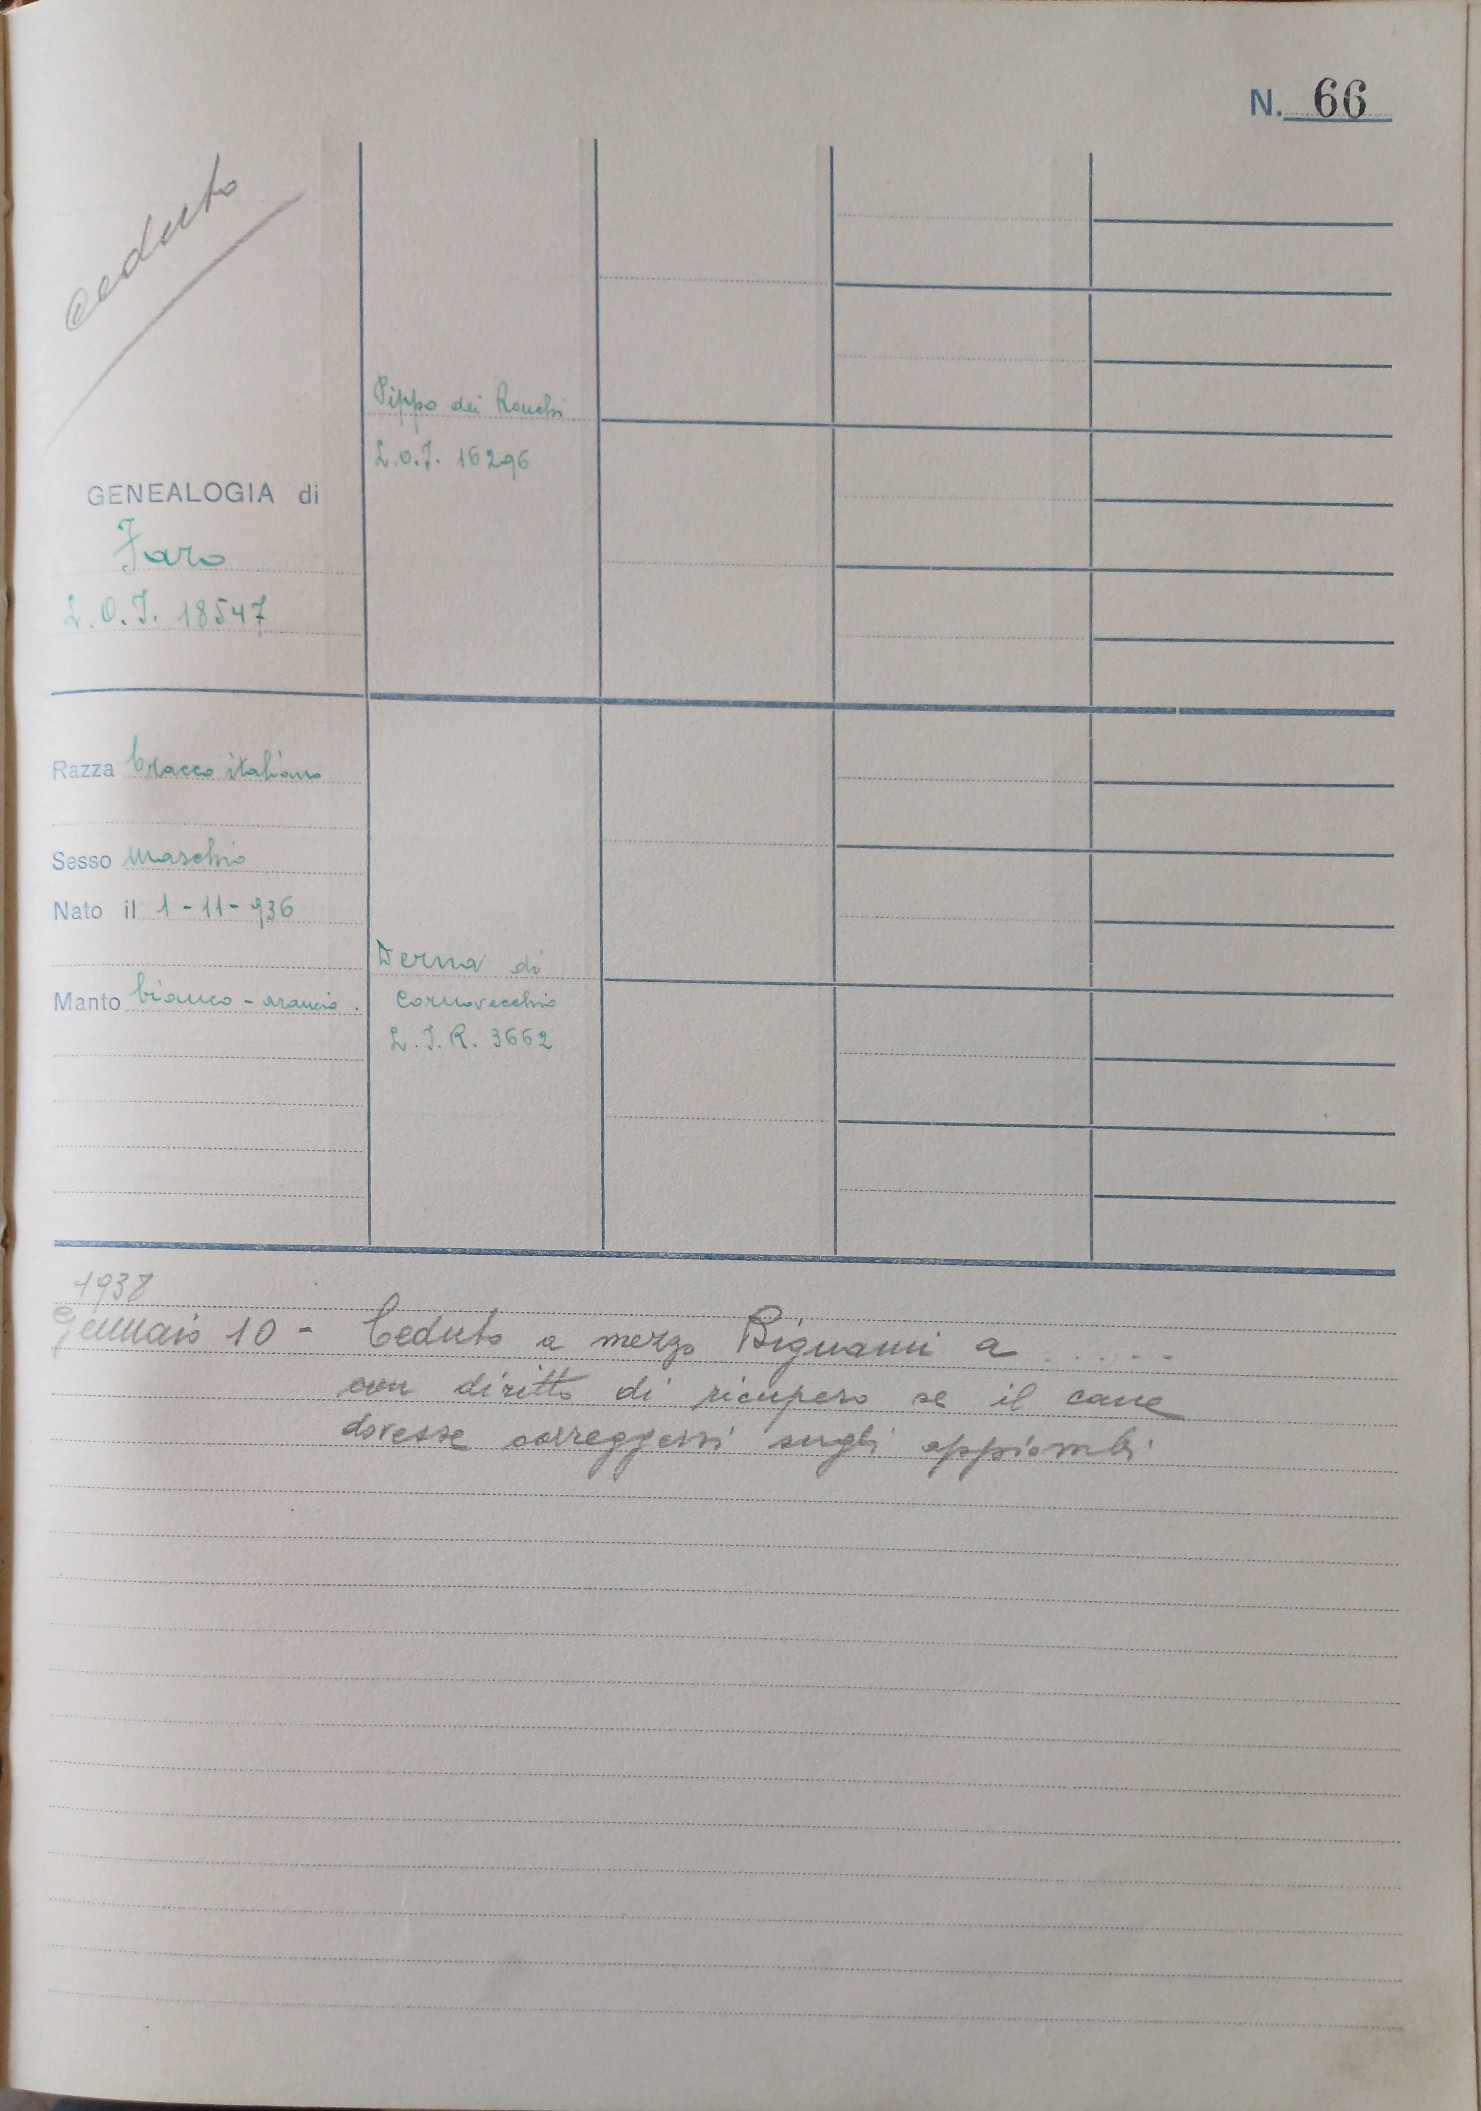 N. 66
ceduto
Pippo dei Ronchi
L.O.I. 16296
GENEALOGIA di
Faro
L.O.I. 18547
Razza bracco italiano
Sesso maschio
Nato il 1-11-936
Derna di
Cornovecchio
L.I.R. 3662
Manto bianco-arancio.
1938
Gennaio 10 - Ceduto a mezzo Bignami a .....
con diritto di ricupero se il cane
dovesse correggersi sugli appiombi